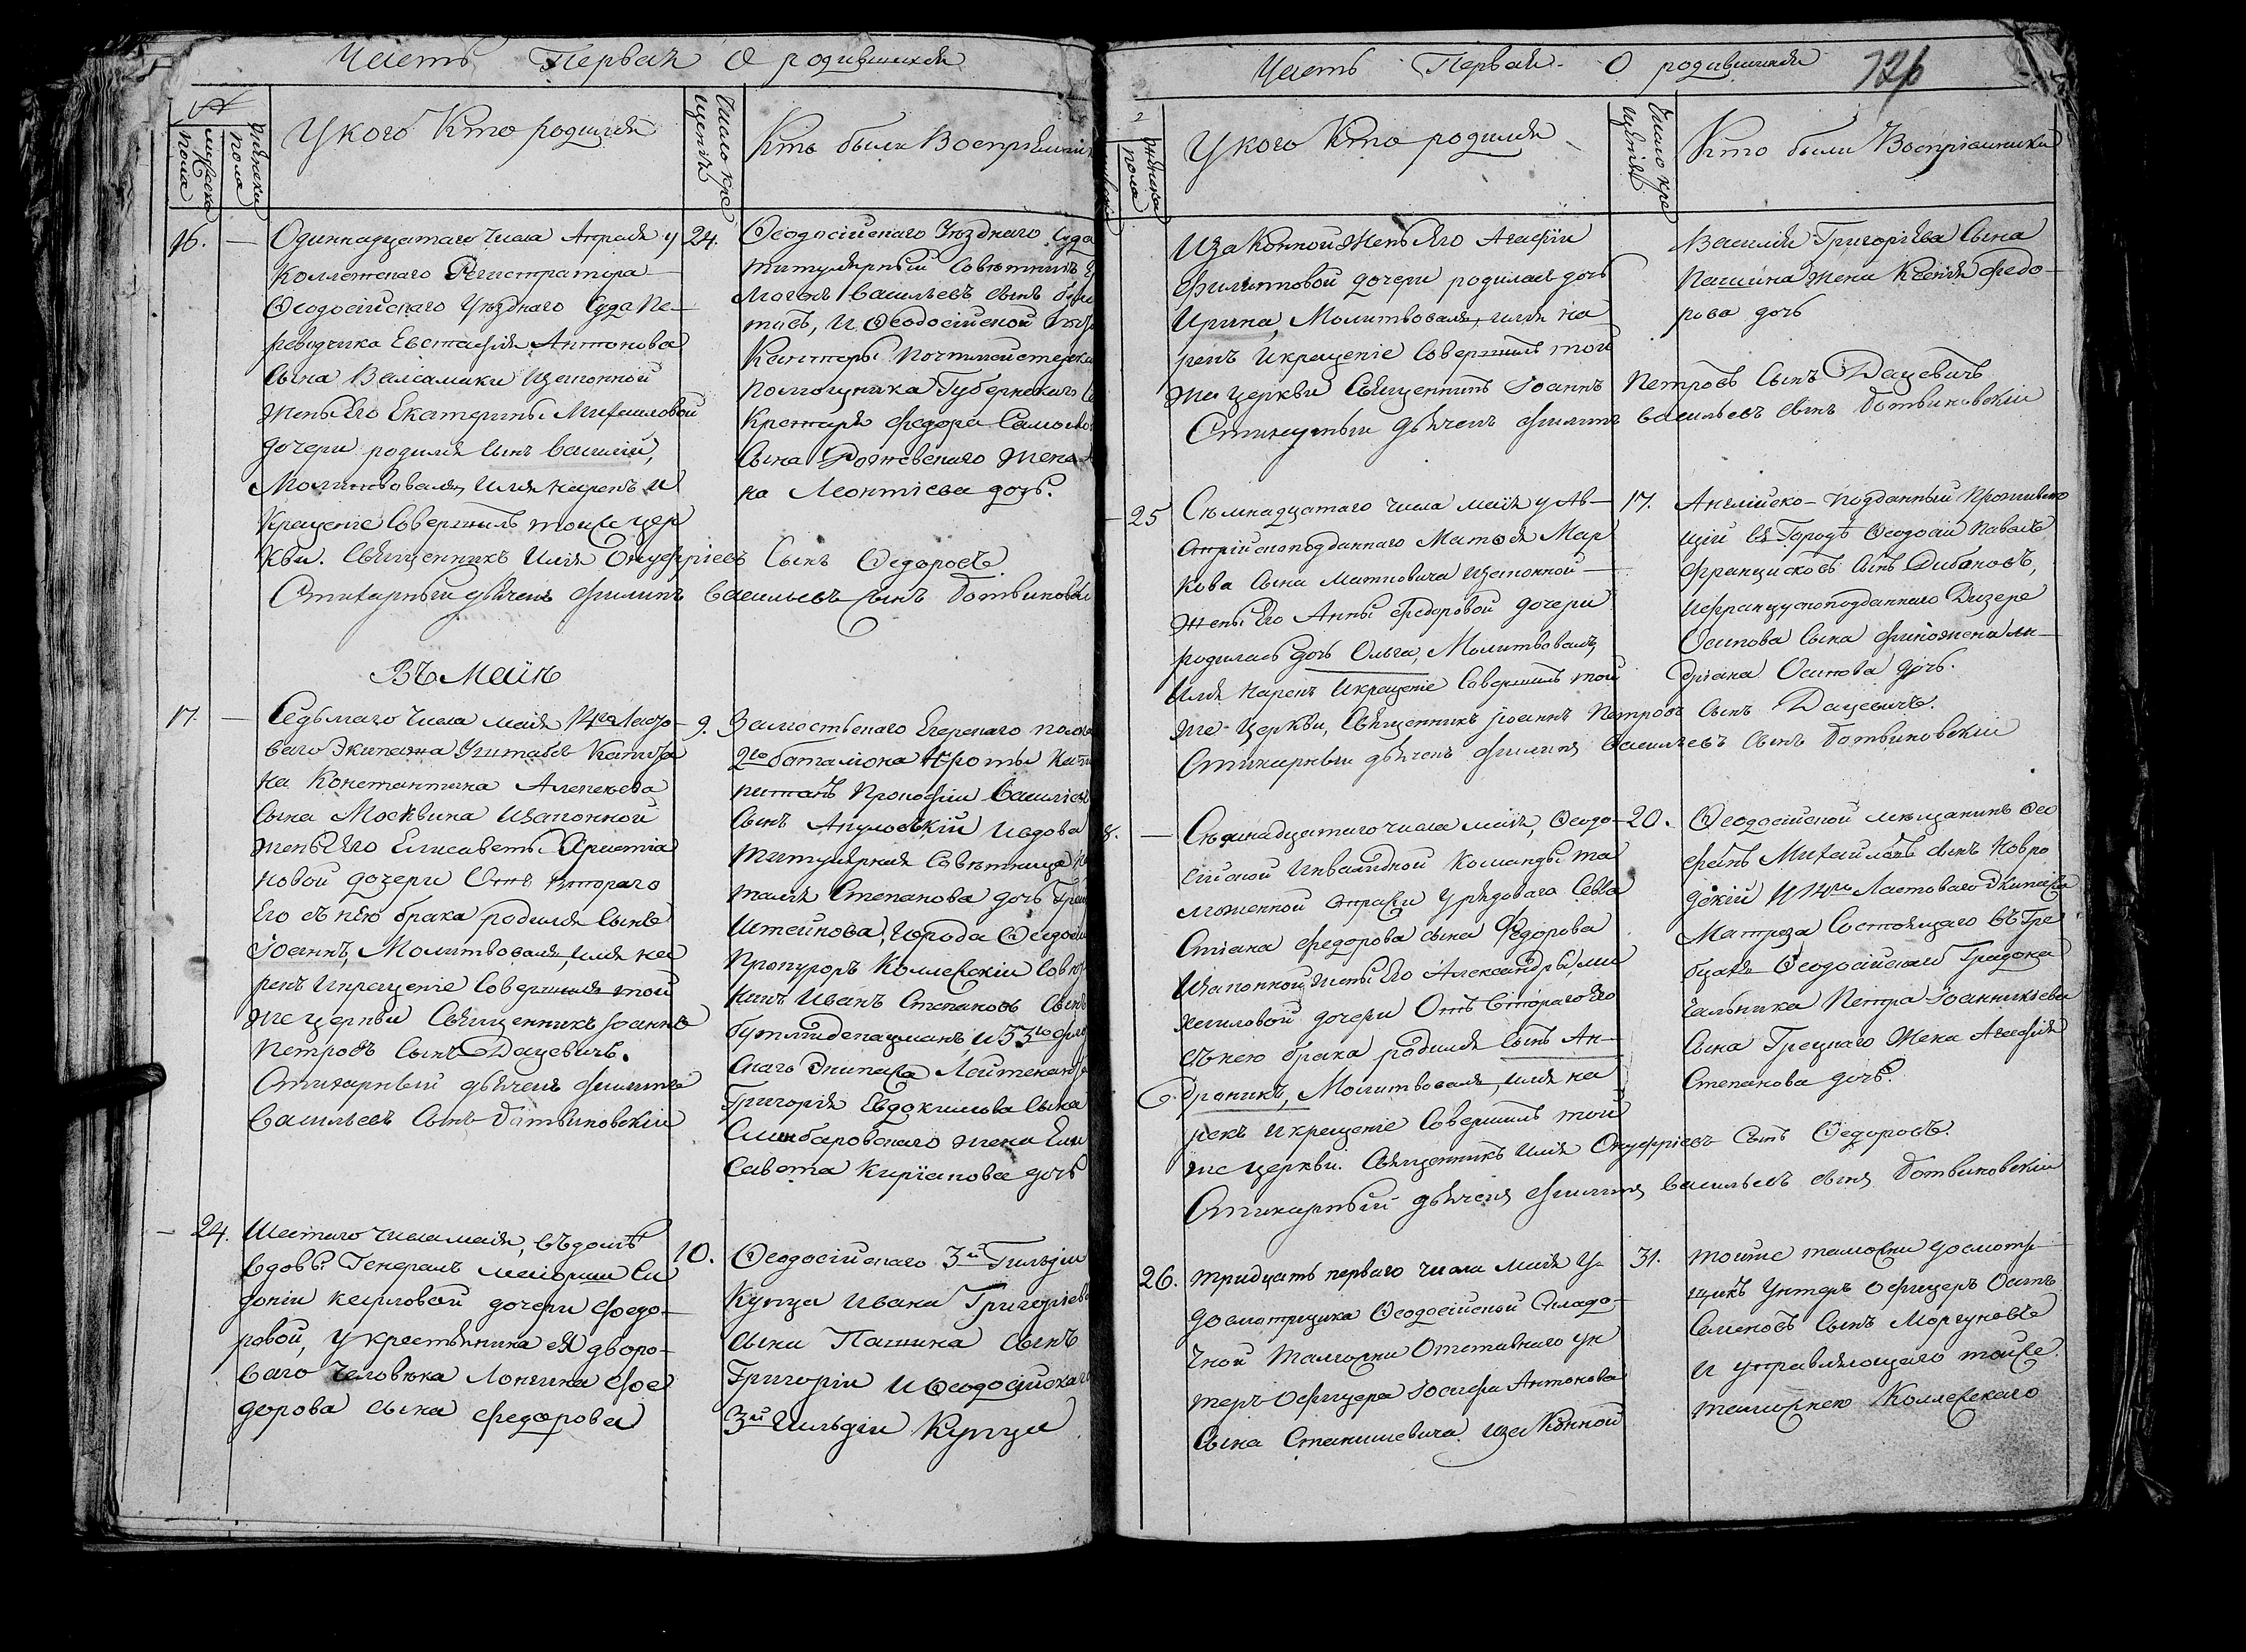 Часть Первая О родившихся
№
мужеска пола
женска пола
У кого Кто родился
Число крещенія
Кто были Воспріемники
16. — Одиннадцатаго Числа Апреля у
Коллежскаго Регистратора
Ѳеодосійскаго Уѣзднаго Суда Пе-
реводчика Евстафія Антонова
Сына Валсамаки Изаконной
Жены Его Екатерины Михаиловой
дочери родился Сынъ Василій,
Молитвовалъ, имя нарекъ и
Крещеніе Совершилъ тойже цер
кви. Священникъ Илія Онуфріевъ Сынъ Ѳедоровъ.
Стихарный дьячекъ Филипъ Васильевъ Сынъ Ботвиновскій
24. Ѳеодосійскаго Уѣзднаго Суда
титулярный Совѣтникъ
Васильевъ Сынъ
и Ѳеодосійской
Канторы Почтмейстерска
помощника Губернскаго Се
кретаря Федора
Сына Рогжевскаго Жена
на Леонтіева дочь.
Въ Маіѣ
17. — Седьмаго Числа маія 14го Ласто-
ваго Экипажа Уштабсъ Капита
на Константина Алексеева
Сына Москвина Изаконной
Жены Его Елисаветы Христіа
новой дочери Отъ втораго
Его съ нею брака родился Сынъ
Іоаннъ, Молитвовалъ, имя на
рекъ Икрещеніе Совершилъ той
же церкви Священникъ Іоаннъ
Петровъ Сынъ Дацевичъ.
Стихарный дьячекъ Филипъ
Васильевъ Сынъ Ботвиновскій
9. Замостьскаго Егерскаго полка
2го баталіона роты
питанъ Прокофій Василіевъ
Сынъ Ивдова
Титулярная Совѣтница
талія Степанова дочь
Штейнова, Города Ѳеодосіи
Прокуроръ Коллежскій Совѣт
никъ Иванъ Степановъ Сынъ
и 53го Фло
скаго Экипажа Лейтенанта
Григорія Евдокимова Сына
Симбаровскаго жена Ели
савета Киріанова дочь
— 24. Шестаго Числа маія, въ домѣ
Вдовы Генералъ Маіорши
доніи Кириловой дочери Федо-
ровой, у крестьянина ея дворо-
ваго человѣка Лонгина Фео
дорова сына Федорова
10. Ѳеодосійскаго 3й Гильдіи
Купца Ивана Григорьева
Сына Пашина Сынъ
Григорій и Ѳеодосійскаго
3й Гильдіи Купца
Часть Первая О родившихся
126
женска пола
У кого Кто родился
Число крещенія
Кто были Воспріемники
Изаконной Жены Его Агафіи
Филиповой дочери родилась дочь
Ирина, Молитвовалъ, имя на
рекъ Икрещеніе Совершилъ той
же церкви Священникъ Іоаннъ Петровъ Сынъ Дацевичъ
Стихарный дьячекъ Филипъ Васильевъ Сынъ Ботвиновскій
Василія Григорьева Сына
Пашина жена Ксенія Федо-
рова дочь
— 25 Съмнадцатаго Числа Маія у Ав-
стрійскоподданнаго Матвея Мар
кова Сына Матковича Изаконной
Жены Его Анны Федоровой дочери
родилась дочь Ольга, Молитвовалъ,
имя нарекъ Икрещеніе Совершилъ той
же церкви, Священникъ Іоаннъ Петровъ Сынъ Дацевичъ.
Стихарный дьячекъ Филипъ Васильевъ Сынъ Ботвиновскій
17. Англійско-подданный Проживаю
щій въ Городѣ Ѳеодосіи Павелъ
Францисковъ Сынъ Дибановъ,
Ифранцускоподданнаго Дизере
Осипова Сына жена
дріана Осипова дочь.
8. — Съмнадцатаго числа маія, Ѳеодо-
сійской Инвалидной Команды та
моженной стражи Урядоваго Сева
стіана Федорова сына Федорова
Изаконной жены Его Александры Ми
хаиловой дочери Отъ втораго Его
съ нею брака родился Сынъ Ан-
дроникъ, Молитвовалъ, имя на
рекъ Икрещеніе Совершилъ той
же церкви. Священникъ Илія Онуфріевъ Сынъ Ѳедоровъ.
Стихарный дьячекъ Филипъ Васильевъ Сынъ Ботвиновскій
20. Ѳеодосійской мѣщанинъ
Михаиловъ сынъ
и 14го Ластоваго Экипажа
Матроза Состоящаго въ Гре
бцахъ Ѳеодосійскаго Градона
чальника Петра Іоанникіева
Сына Грецкаго Жена Агафія
Степанова дочь.
26. тридцать перваго числа Маія у
досмотрщика Ѳеодосійской Складо-
чной Таможни Отставнаго ун
теръ-Офицера Іосифа Антонова
Сына Станишевича изаконной
31. тойже таможни досмотр-
щикъ Унтеръ Офицеръ Осипъ
Семеновъ Сынъ Моргуновъ
и управляющаго тойже
таможнею Коллежскаго